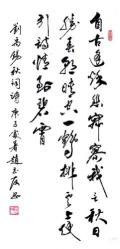 自古逢秋悲寂寥我言秋日
胜春朝晴空一鹤排云上便
引诗情到碧霄
刘禹锡秋词诗庚寅春